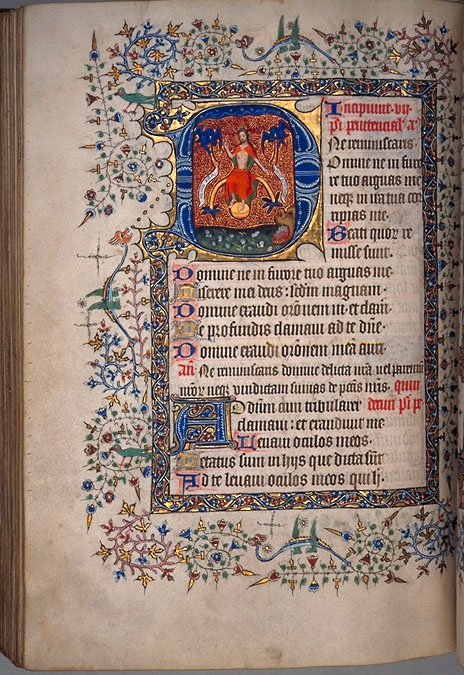 Incipiunt vii
ps̄ penitencial' an̄
Ne reminiscaris.
Domine ne in furo
re tuo arguas me
neq; in ira tua cor
ripias me.
Beati quor re
misse sunt.
Domine ne in furore tuo arguas me
Miserere mei deus : sedm magnam.
Domine exaudi orōnem m̄ : et clam̄
De profundis clamavi ad te dn̄e.
Domine exaudi orōnem meā auri.
an̄. Ne reminiscaris domine delicta nr̄a vel parentū
nr̄or neq; vindictam sumas de pccīs nr̄is. quin
Ad dūm cum tribularer decim ps̄ pe
clamavi : et exaudivit me
Levavi oculos meos.
Letatus sum in hijs que dicta sūt
Ad te levavi oculos meos qui h̄.